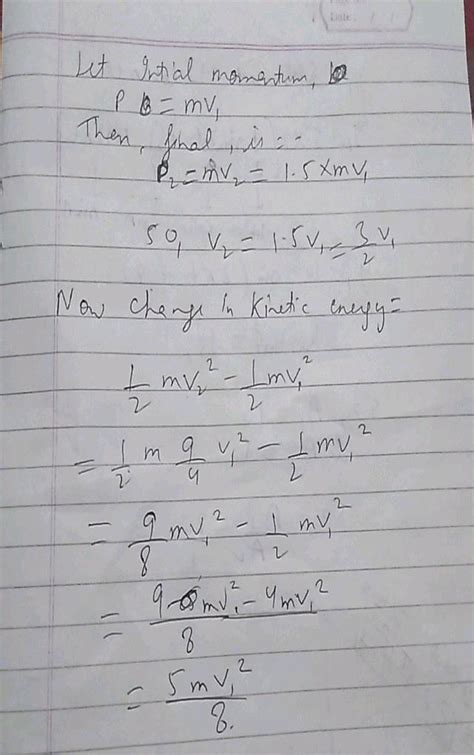 Date:
Let Intial momentum,
P = mv₁
Then, final, is :-
P₂ = mv₂ = 1.5 × mv₁
SO, v₂ = 1.5v₁ = 3/2 v₁
Now change in Kinetic energy =
1/2 mv₂² - 1/2 mv₁²
= 1/2 m 9/4 v₁² - 1/2 mv₁²
= 9/8 mv₁² - 1/2 mv₁²
= 9 mv₁² - 4mv₁² / 8
= 5mv₁² / 8.